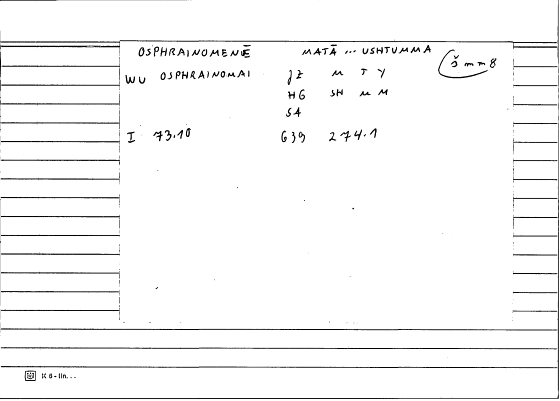 OSPHRAINOMENĒ MATĀ ... USHTUMMA
š m m 8
WU OSPHRAINOMAI JZ M T Y
HG SH M M
SA
I 73.10 639 274.1